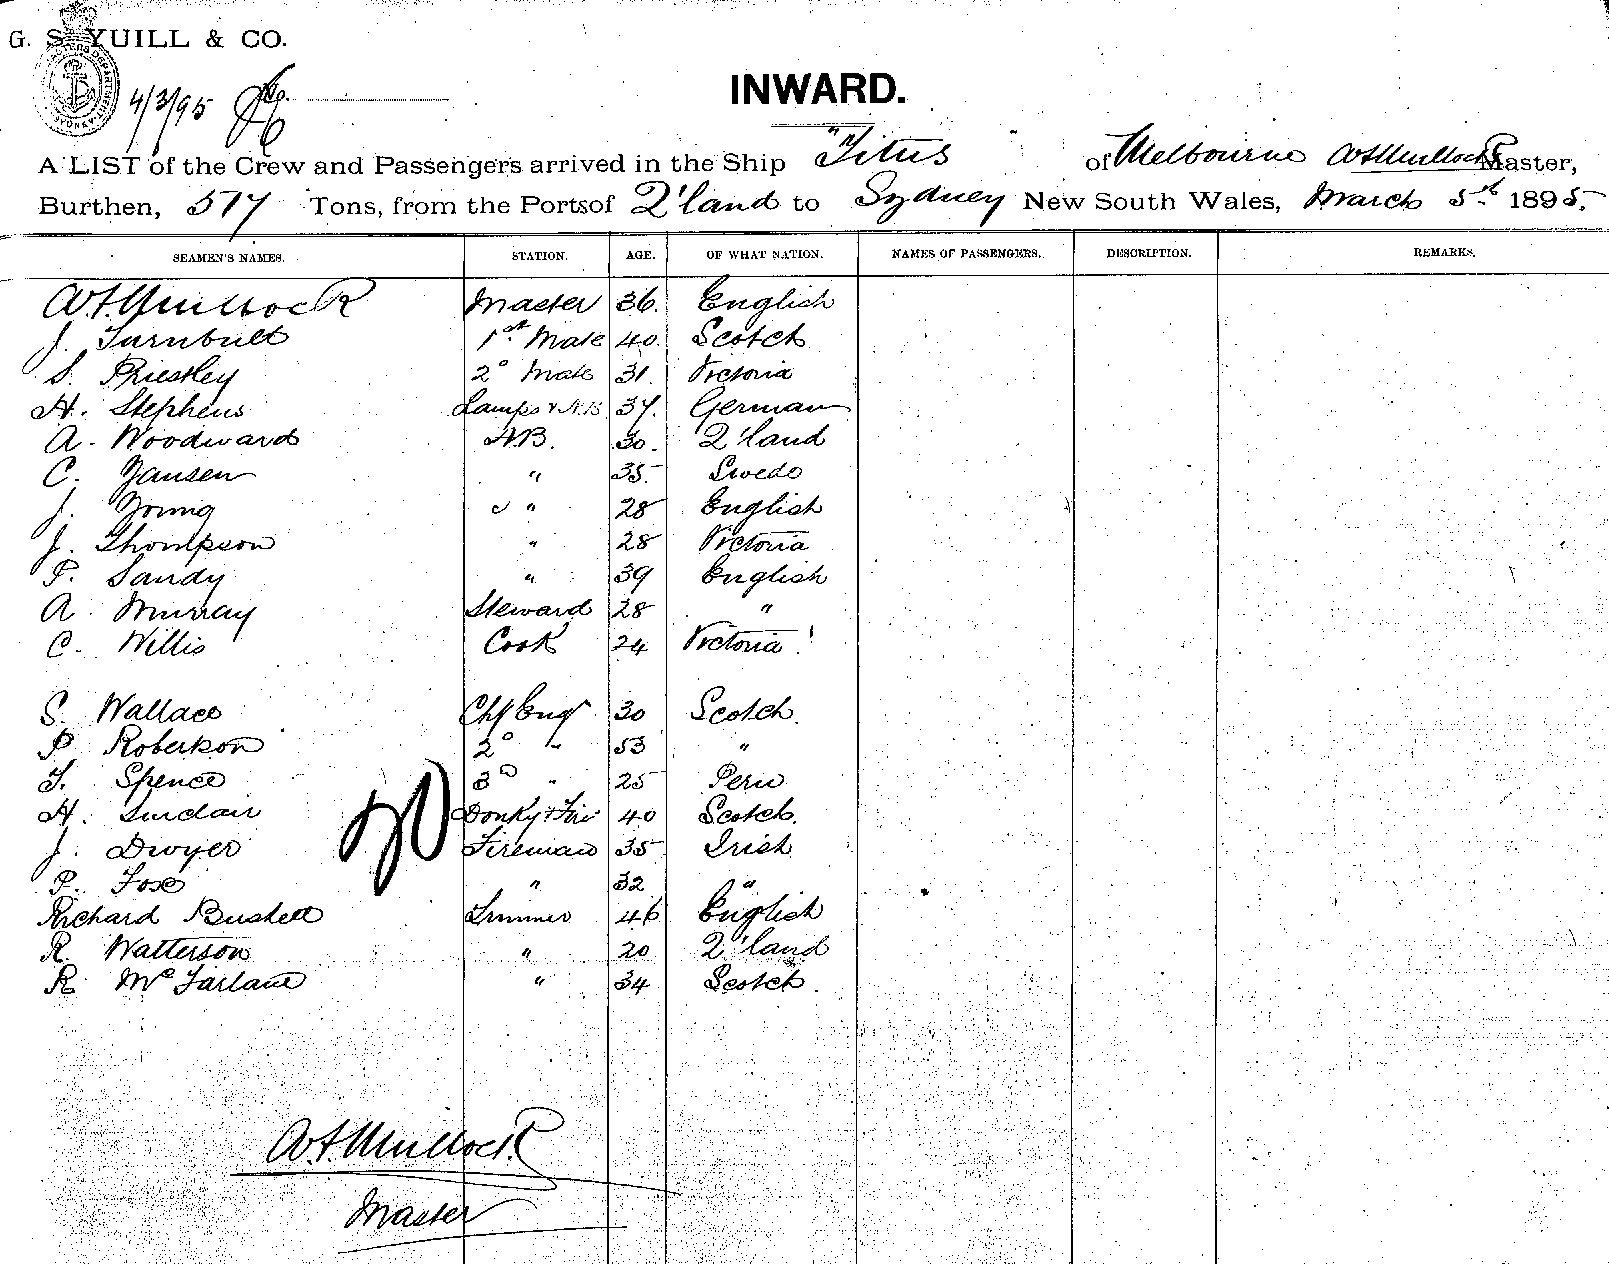 G. S. YUILL & CO.
4/3/95
INWARD.
A LIST of the Crew and Passengers arrived in the Ship "Titus" of Melbourne Master,
Burthen, 517 Tons, from the Ports of Q'land to Sydney New South Wales, March 5th 1895.
SEAMEN'S NAMES. STATION. AGE. OF WHAT NATION. NAMES OF PASSENGERS. DESCRIPTION. REMARKS.
Mullock Master 36. English
J. Turnbull 1st Mate 40. Scotch
S. Priestley 2° Mate 31. Victoria
H. Stephens Lamps & A.B. 37. German
A. Woodward A.B. 30. Q'land
C. Jansen " 35. Swede
J. Young " 28 English
J. Thompson " 28 Victoria
P. Sandy " 39 English
A. Murray Steward 28 "
C. Willis Cook 24 Victoria
S. Wallace Chf Engr 30 Scotch.
P. Robertson 2° " 53 "
T. Spence 3D " 25 Peru
H. Sinclair Donky & Fire 40 Scotch.
J. Dwyer Fireman 35 Irish
P. Fox " 32 "
Richard Bushell Trimmer 46 English
R. Watterson " 20 Q'land
R. McFarlane " 34 Scotch.
20
Mullock
Master